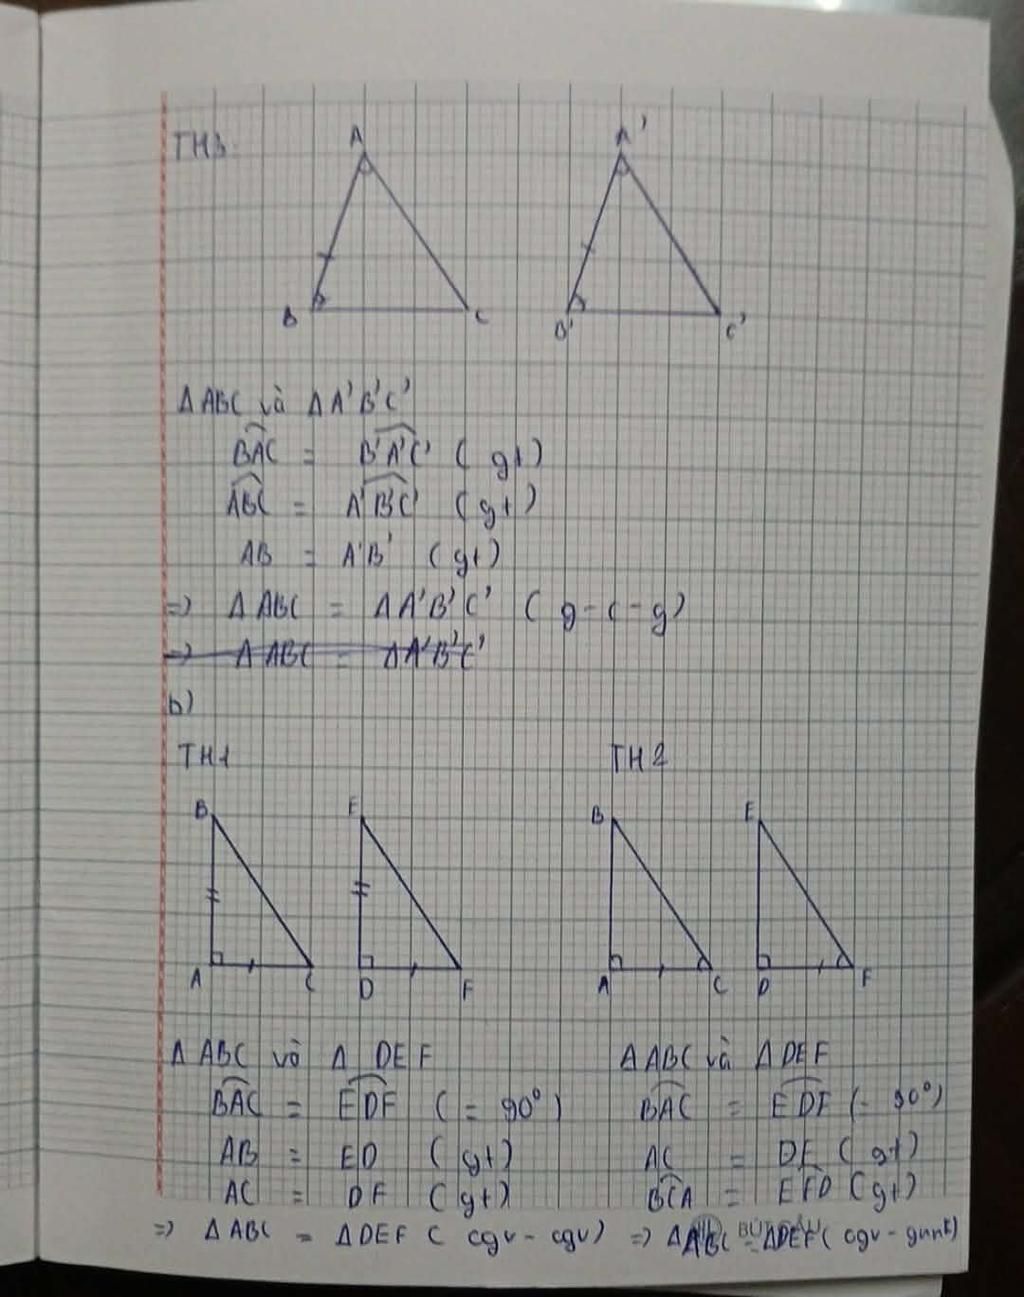 TH3
A
A'
B
C
B'
C'
Δ ABC và Δ A'B'C'
BAC = B'A'C' (gt)
ABC = A'B'C' (gt)
AB = A'B' (gt)
=> Δ ABC = Δ A'B'C' (g-c-g)
=> Δ ABC = Δ A'B'C'
b)
TH1
TH2
B
E
B
E
A
C
D
F
A
C
D
F
Δ ABC và Δ DEF
BAC = EDF (= 90°)
AB = ED (gt)
AC = DF (gt)
=> Δ ABC = Δ DEF ( cgv - cgv)
Δ ABC và Δ DEF
BAC = EDF (= 90°)
AC = DF (gt)
BCA = EFD (gt)
=> Δ ABC = Δ DEF ( cgv - gnnk)